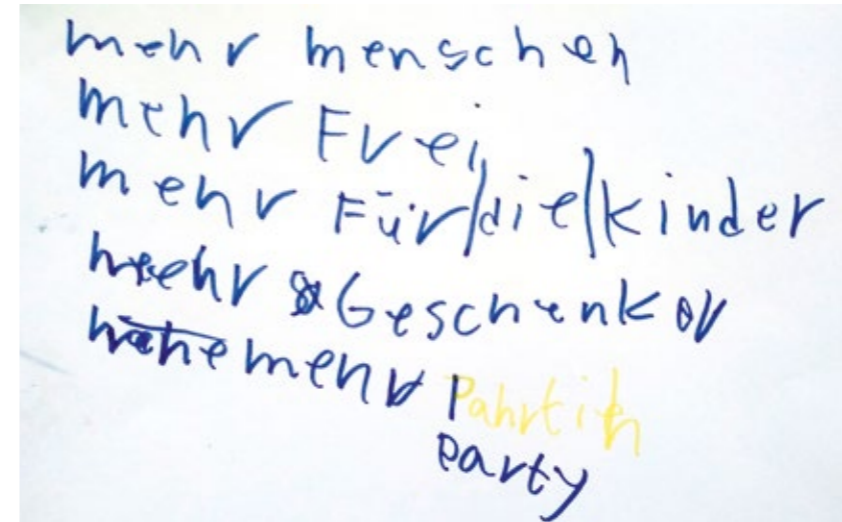 mehr menschen
mehr Frei
mehr Für/die/kinder
mehr Geschenker
mehr Pahrtih
party